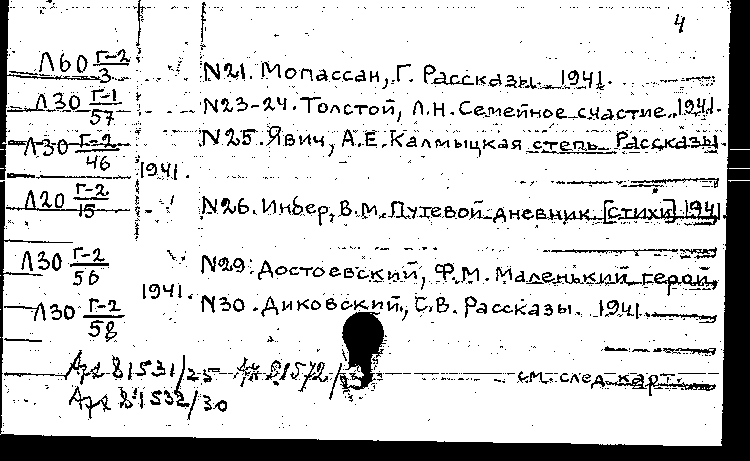 4
Л60 Г-2/3 N21. Мопассан, Г. Рассказы. 1941.
Л30 Г-1/57 N23-24. Толстой, Л.Н. Семейное счастие. 1941.
Л30 Г-2/46 N25. Явич, А.Е. Калмыцкая степь. Рассказы.
1941.
Л20 Г-2/15 N26. Инбер, В.М. Путевой дневник [стихи] 1941.
Л30 Г-2/56 N29. Достоевский, Ф.М. Маленький герой.
1941.
Л30 Г-2/58 N30. Диковский, С.В. Рассказы. 1941.
81531/25 81572/
см. след. карт.
81532/30